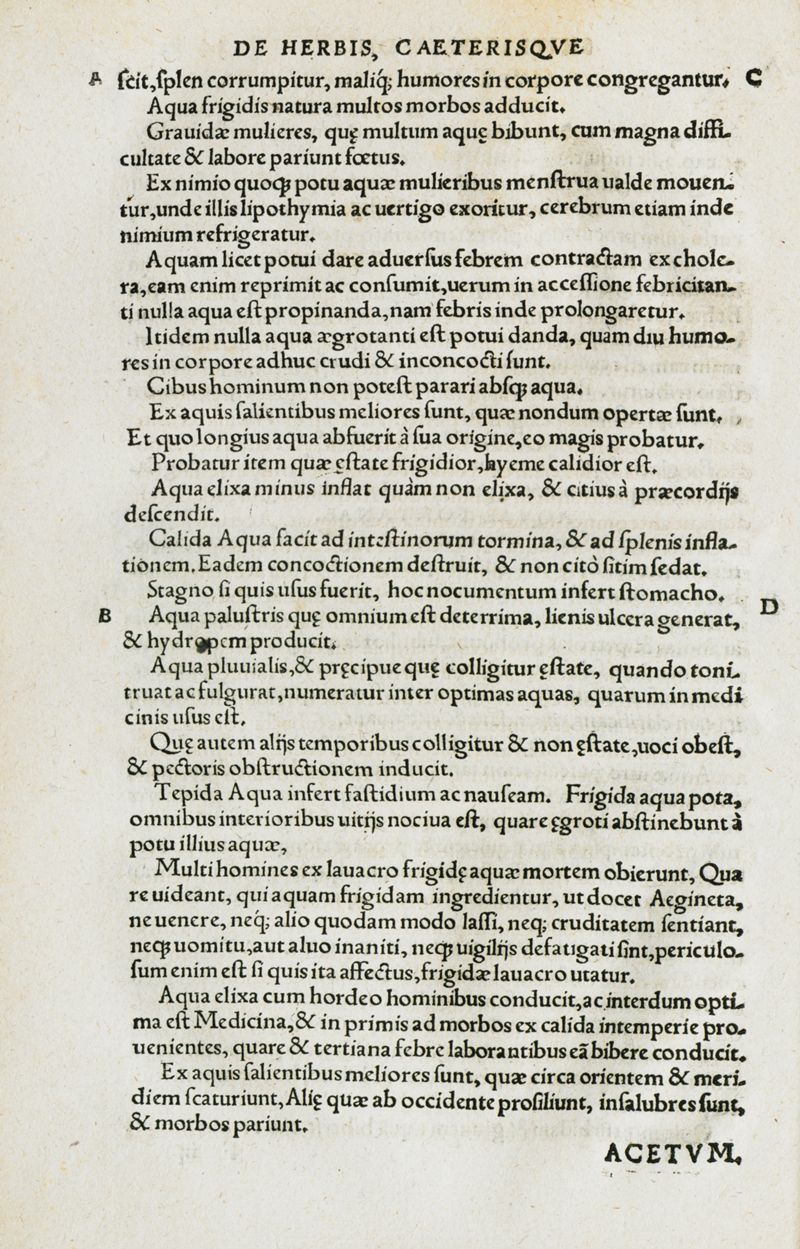 DE HERBIS, CAETERISQVE
A ſcit,ſplen corrumpitur, maliq́; humores in corpore congregantur. C
Aqua frigidis natura multos morbos adducit.
Grauidæ mulieres, quę multum aquę bibunt, cum magna diffi-
cultate & labore pariunt fœtus.
Ex nimio quoq; potu aquæ mulieribus menſtrua ualde mouen-
tur,unde illis lipothymia ac uertigo exoritur, cerebrum etiam inde
nimium refrigeratur.
Aquam licet potui dare aduerſus febrem contractam ex chole-
ra,eam enim reprimit ac conſumit,uerum in acceſſione febricitan-
ti nulla aqua eſt propinanda,nam febris inde prolongaretur.
Itidem nulla aqua ægrotanti eſt potui danda, quam diu humo-
res in corpore adhuc crudi & inconcocti ſunt.
Cibus hominum non poteſt parari abſq; aqua.
Ex aquis ſalientibus meliores ſunt, quæ nondum opertæ ſunt.
Et quo longius aqua abfuerit à ſua origine,eo magis probatur.
Probatur item quæ ęſtate frigidior,hyeme calidior eſt.
Aqua elixa minus inflat quàm non elixa, & citius à præcordijs
deſcendit.
Calida Aqua facit ad inteſtinorum tormina, & ad ſplenis infla-
tionem. Eadem concoctionem deſtruit, & non citò ſitim ſedat.
Stagno ſi quis uſus fuerit, hoc nocumentum infert ſtomacho.
D
B Aqua paluſtris quę omnium eſt deterrima, lienis ulcera generat,
& hydropem producit.
Aqua pluuialis,& pręcipue quę colligitur ęſtate, quando toni-
truat ac fulgurat,numeratur inter optimas aquas, quarum in medi
cinis uſus eſt.
Quę autem alijs temporibus colligitur & non ęſtate,uoci obeſt,
& pectoris obſtructionem inducit.
Tepida Aqua infert faſtidium ac nauſeam. Frigida aqua pota,
omnibus interioribus uitijs nociua eſt, quare ęgroti abſtinebunt à
potu illius aquæ,
Multi homines ex lauacro frigidę aquæ mortem obierunt, Qua
re uideant, qui aquam frigidam ingredientur, ut docet Aegineta,
ne uenere, neq; alio quodam modo laſſi, neq; cruditatem ſentiant,
neq; uomitu,aut aluo inaniti, neq; uigilijs defatigati ſint,periculo-
ſum enim eſt ſi quis ita affectus,frigidæ lauacro utatur.
Aqua elixa cum hordeo hominibus conducit,ac interdum opti-
ma eſt Medicina,& in primis ad morbos ex calida intemperie pro-
uenientes, quare & tertiana febre laborantibus eã bibere conducit.
Ex aquis ſalientibus meliores ſunt, quæ circa orientem & meri-
diem ſcaturiunt, Alię quæ ab occidente proſiliunt, inſalubres ſunt,
& morbos pariunt.
ACETVM,